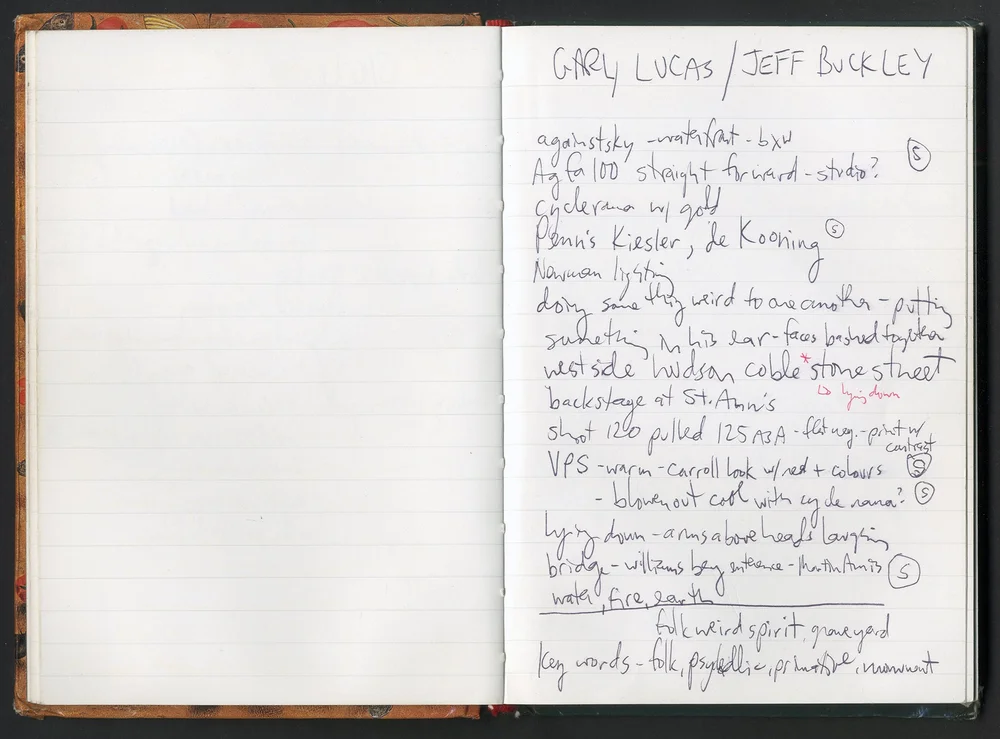 GARY LUCAS / JEFF BUCKLEY
against sky - waterfront - b x w
Agfa 100 straight forward - studio? S
cyclerama w/ gold
Penn's Kiesler, de Kooning S
Newman lighting
doing something weird to one another - putting
something in his ear - faces bashed together
westside hudson coble * stone street
↳ lying down
backstage at St. Ann's
shoot 120 pulled 125 - flat neg. - print w/
contrast
VPS - warm - Carroll look w/ red + colours S
- blown out cool with cyclerama? S
lying down - arms above heads laughing
bridge - williamsburg entrance - Martin Amis S
water, fire, earth
folk weird spirit, graveyard
key words - folk, psychedlic, primitive, monument